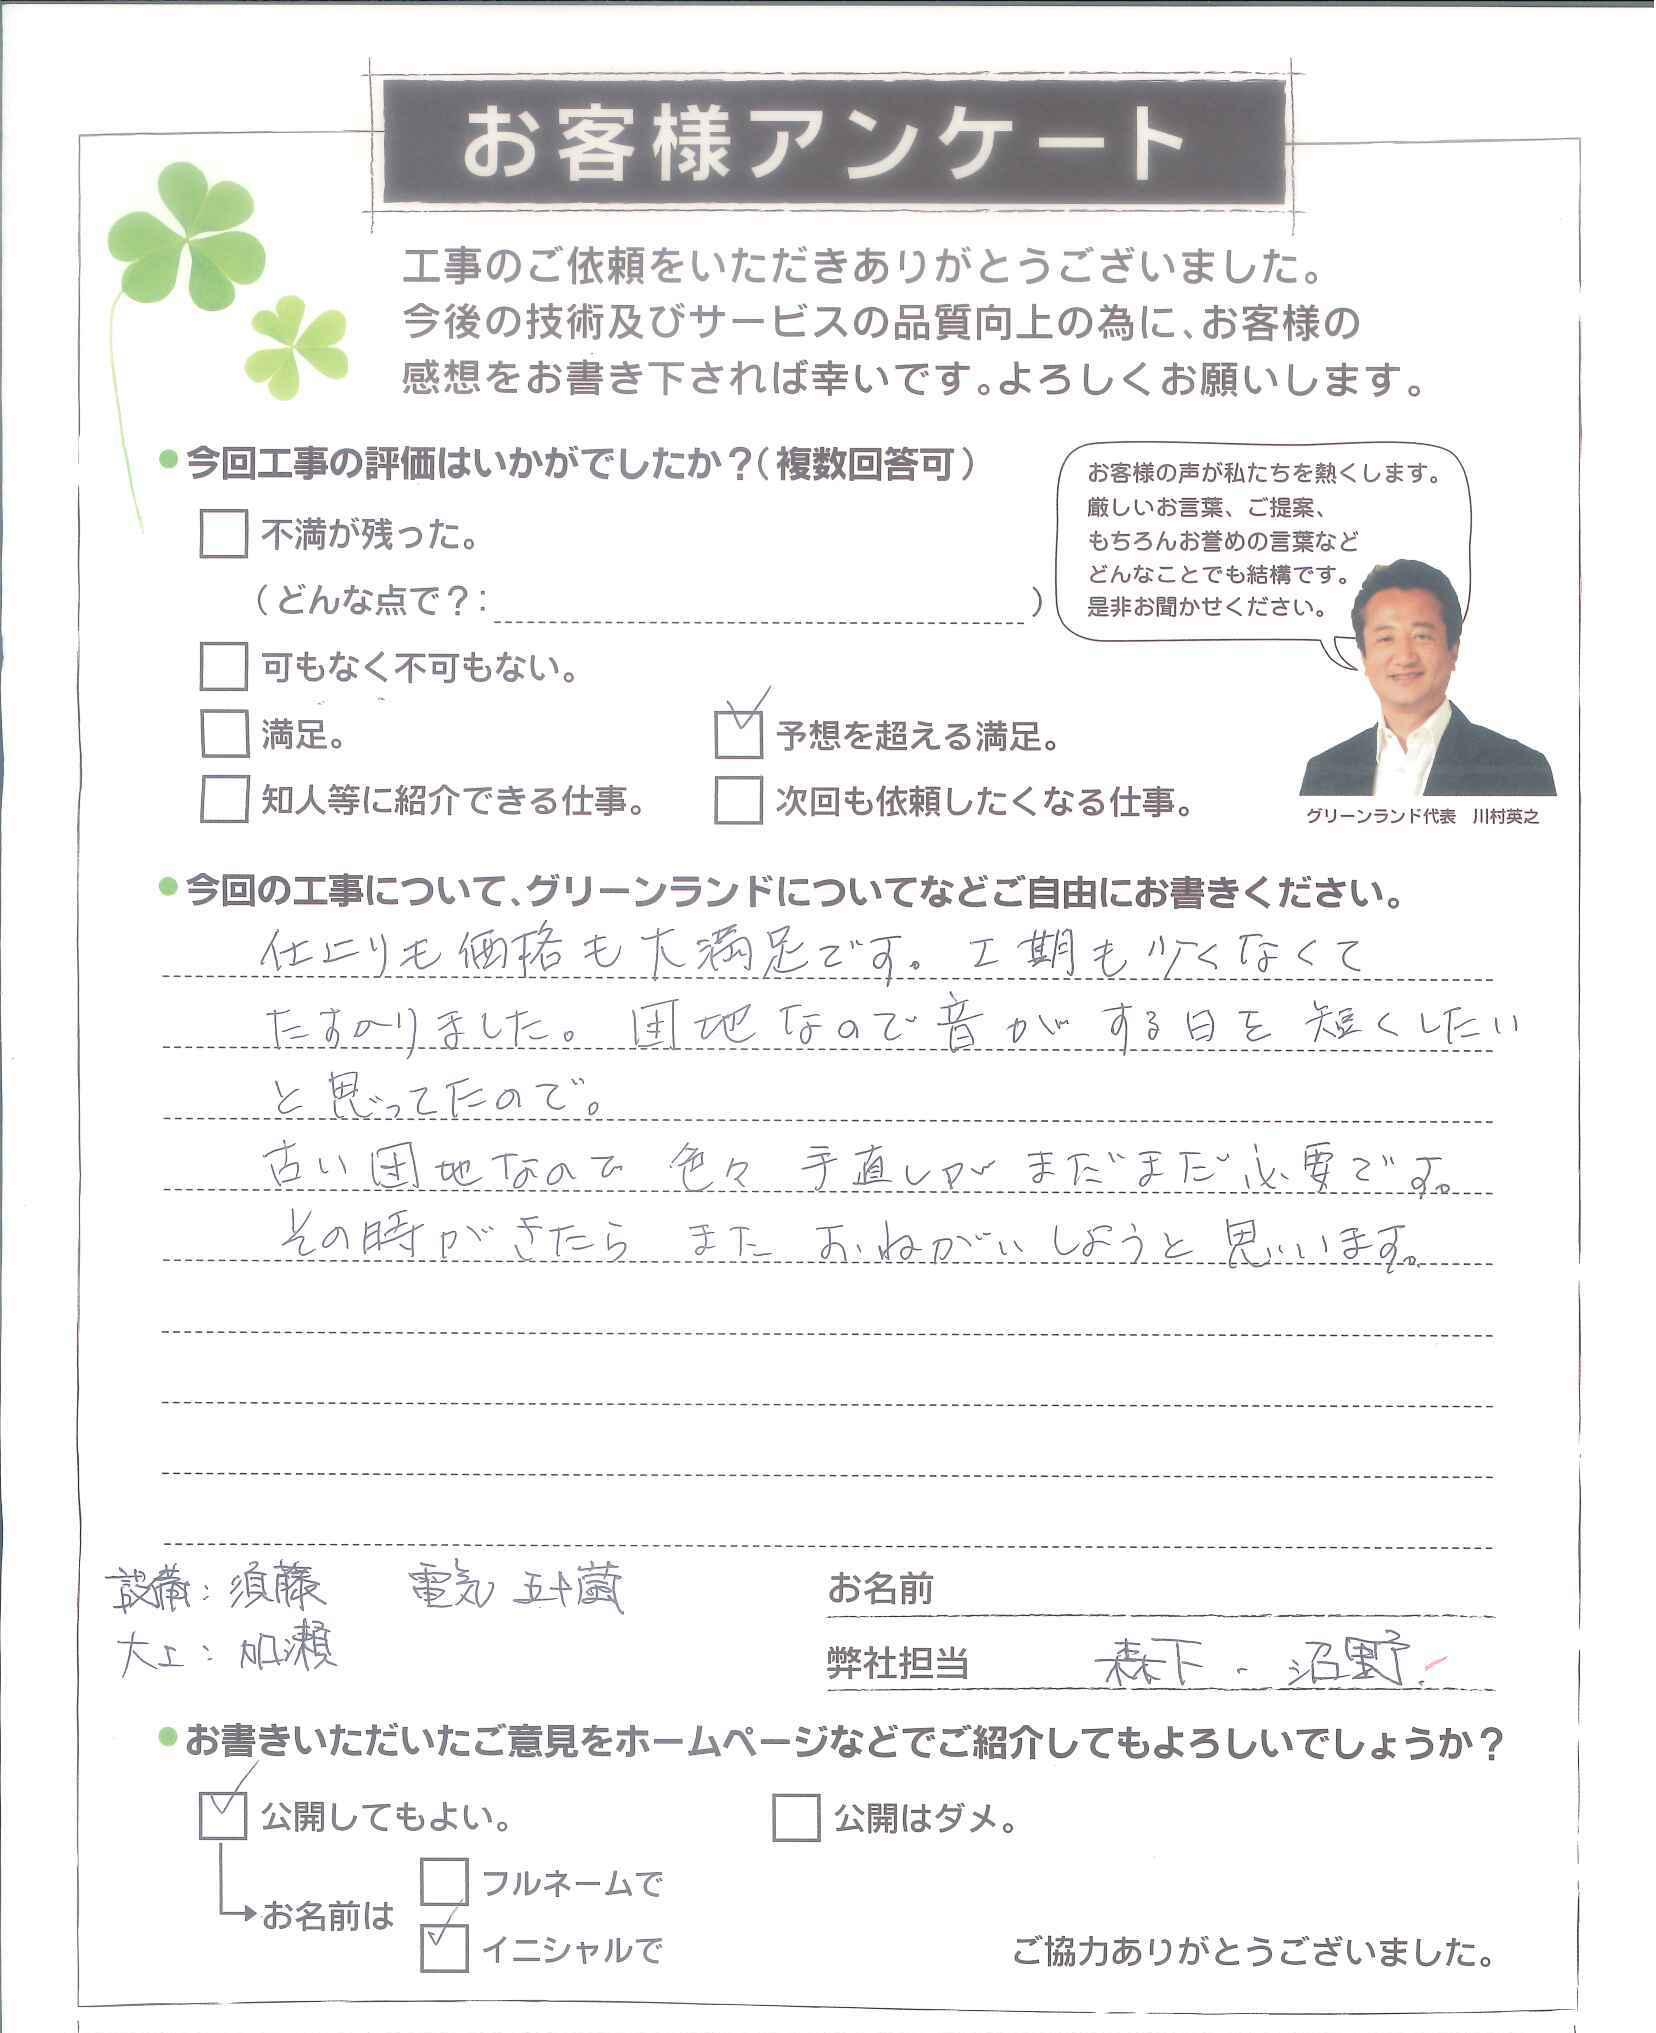 お客様アンケート
工事のご依頼をいただきありがとうございました。
今後の技術及びサービスの品質向上の為に、お客様の
感想をお書き下されば幸いです。よろしくお願いします。
今回工事の評価はいかがでしたか？（複数回答可）
不満が残った。
（どんな点で？: ）
可もなく不可もない。
満足。
予想を超える満足。
知人等に紹介できる仕事。
次回も依頼したくなる仕事。
お客様の声が私たちを熱くします。
厳しいお言葉、ご提案、
もちろんお誉めの言葉など
どんなことでも結構です。
是非お聞かせください。
グリーンランド代表 川村英之
今回の工事について、グリーンランドについてなどご自由にお書きください。
仕上りも価格も大満足です。工期も少くなくて
たすかりました。団地なので音がする日を短くしたい
と思ってたので。
古い団地なので色々手直しがまだまだ必要です。
その時がきたらまたおねがいしようと思います。
設備：須藤 電気 五十嵐
大工：加瀬
お名前
弊社担当 森下・沼野
お書きいただいたご意見をホームページなどでご紹介してもよろしいでしょうか？
公開してもよい。
公開はダメ。
お名前は
フルネームで
イニシャルで
ご協力ありがとうございました。